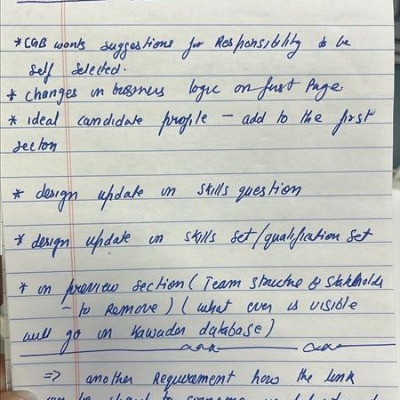 * CGB wants suggestions for Responsibility to be
self selected.
* changes in business logic on first Page.
* ideal candidate profile - add to the first
section
* design update in skills question
* design update in skills set/qualification set
* in preview section (Team structure & stakeholds
- to remove) (what ever is visible
will go in Kawader database)
=> another Requirement how the link